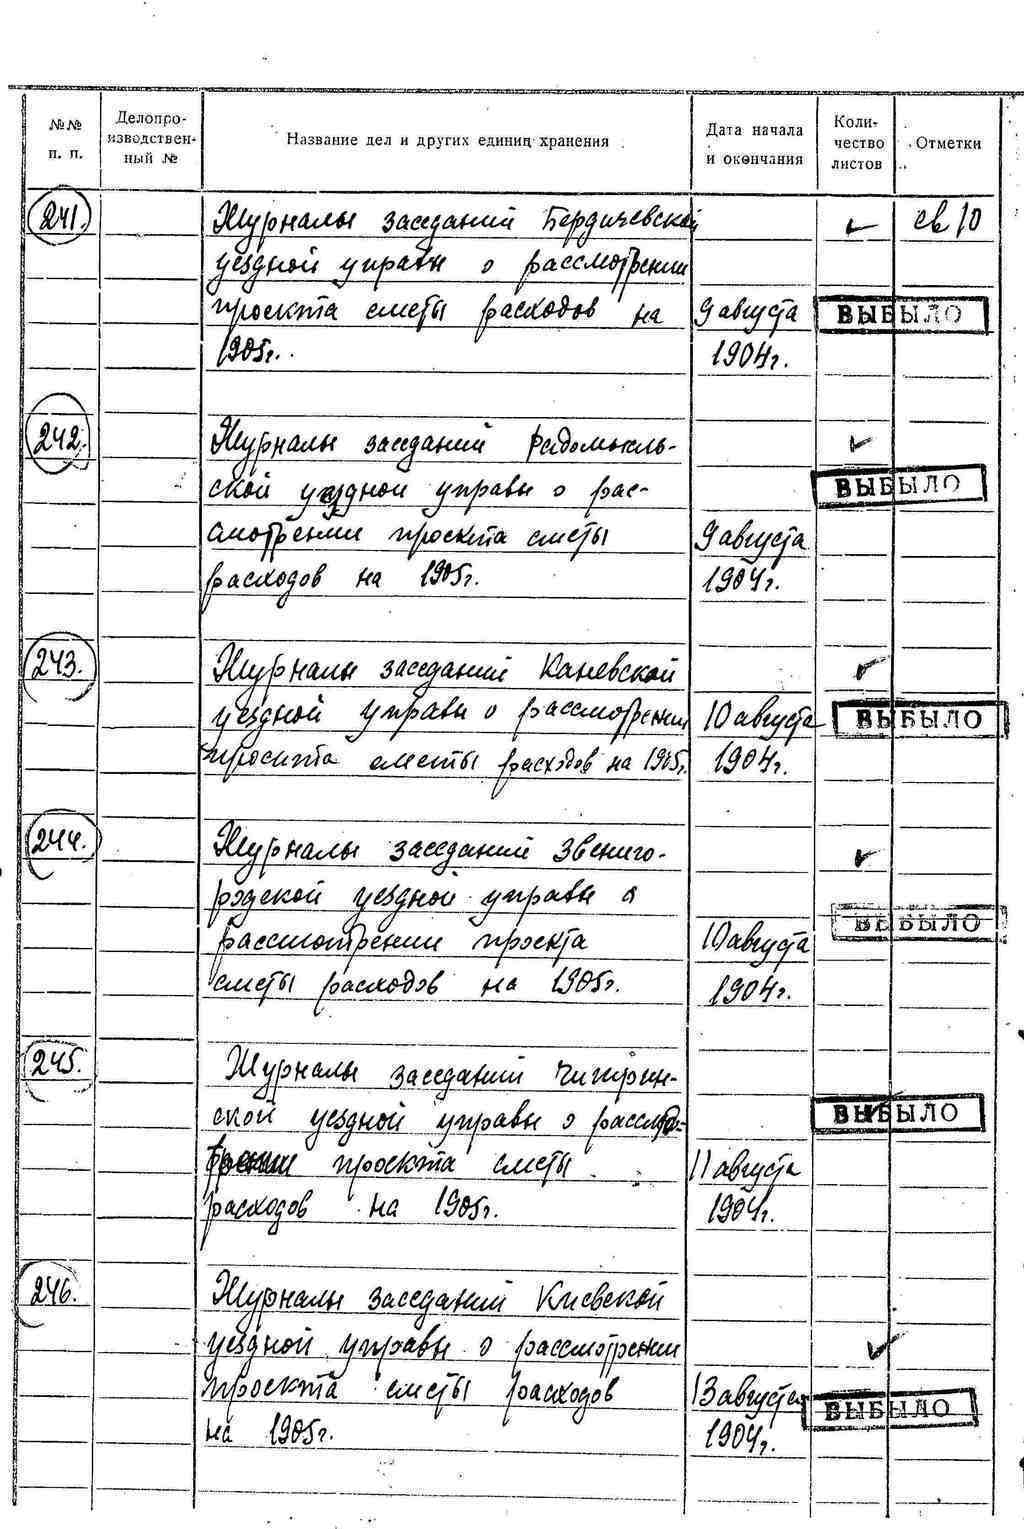 №№ п. п.
Делопро-
изводствен-
ный №
Название дел и других единиц хранения
Дата начала
и окончания
Коли-
чество
листов
Отметки
241. Журналы заседаний Бердичевской св 10
уездной управы о рассмотрении
проекта сметы расходов на 9 августа ВЫБЫЛО
1905г. 1904г.
242. Журналы заседаний Радомысль-
ской уездной управы о рас- ВЫБЫЛО
смотрении проекта сметы 9 августа
расходов на 1905г. 1904г.
243. Журналы заседаний Каневской
уездной управы о рассмотрении 10 августа ВЫБЫЛО
проекта сметы расходов на 1905г. 1904г.
244. Журналы заседаний Звениго-
родской уездной управы о ВЫБЫЛО
рассмотрении проекта 10 августа
сметы расходов на 1905г. 1904г.
245. Журналы заседаний Чигирин-
ской уездной управы о рассмот- ВЫБЫЛО
рении проекта сметы 11 августа
расходов на 1905г. 1904г.
246. Журналы заседаний Киевской
уездной управы о рассмотрении
проекта сметы расходов 13 августа ВЫБЫЛО
на 1905г. 1904г.